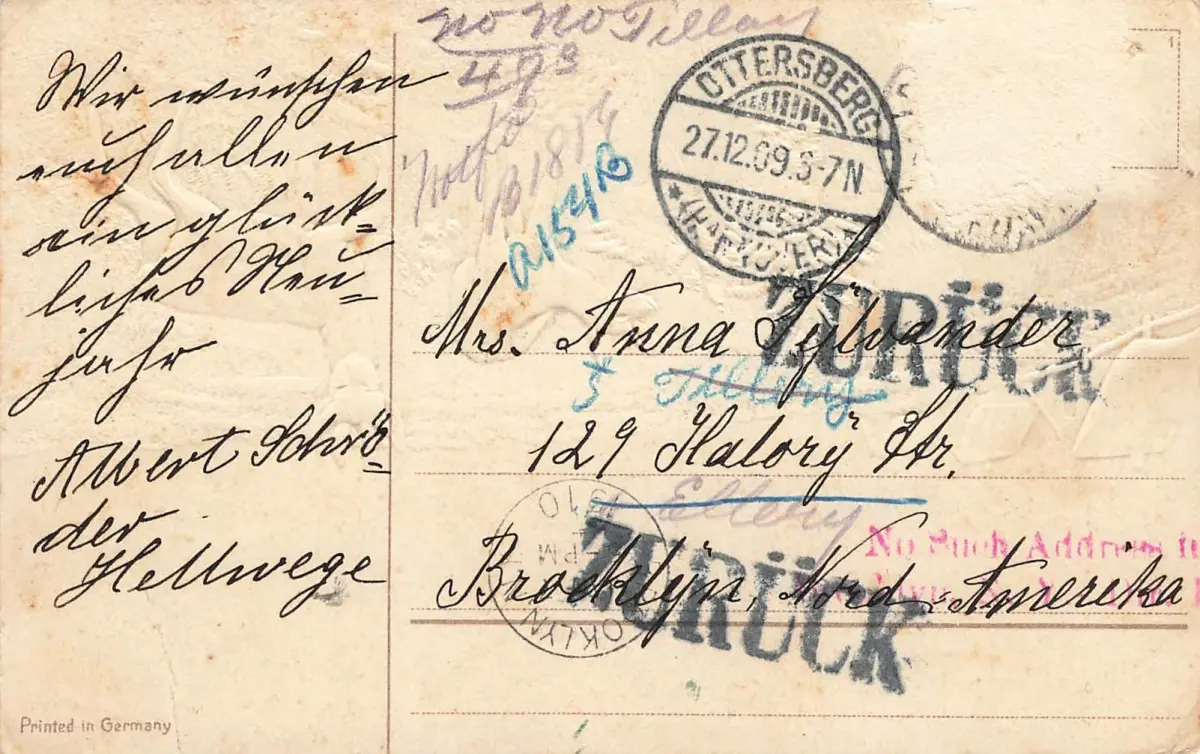 Wir wünschen
euch allen
ein glück=
liches Neu=
jahr
Albert Schrö=
der
Hellwege
Printed in Germany
No No Tillary
a1541B
OTTERSBERG
27.12.09.6-7N
*(HANNOVER)
1
ZURÜCK
Mrs. Anna Sylvander
Tillery
129 Halory Str.
Ellery
No Such Address in
Brooklyn, Nord-Amerika
1910
PM
OKLYN
ZURÜCK